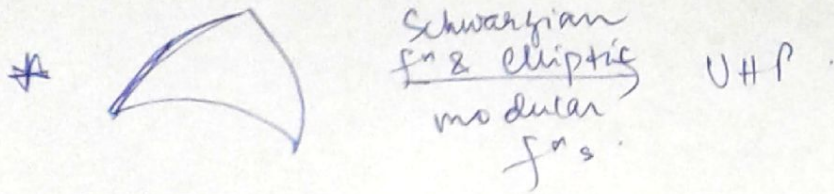 * Schwarzian
fⁿ & elliptic UHP.
modular
fⁿs.